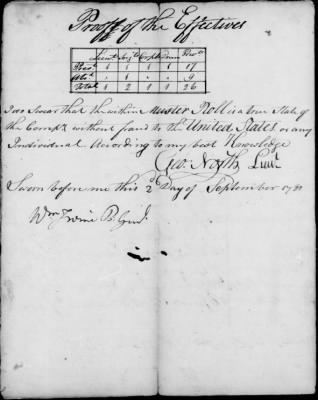 Proof of the Effectives
Lieut Serjts Corpls Drum Privts
Prest 1 1 1 1 17
Abst 1 9
Total 1 2 1 1 26
I do Swear that the within Muster Roll is a true State of
the Compy without fraud to the United States or any
Individual According to my best Knowledge
Geo. North Lieut
Sworn before me this 2d Day of September 1781
Wm Irvine B. Genl